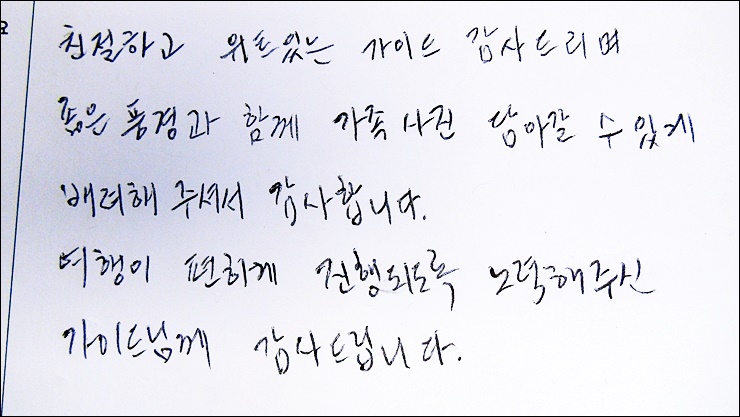 요
친절하고 위트있는 가이드 감사드리며
좋은 풍경과 함께 가족사진 담아갈 수 있게
배려해 주셔서 감사합니다.
여행이 편하게 진행되도록 노력해주신
가이드님께 감사드립니다.